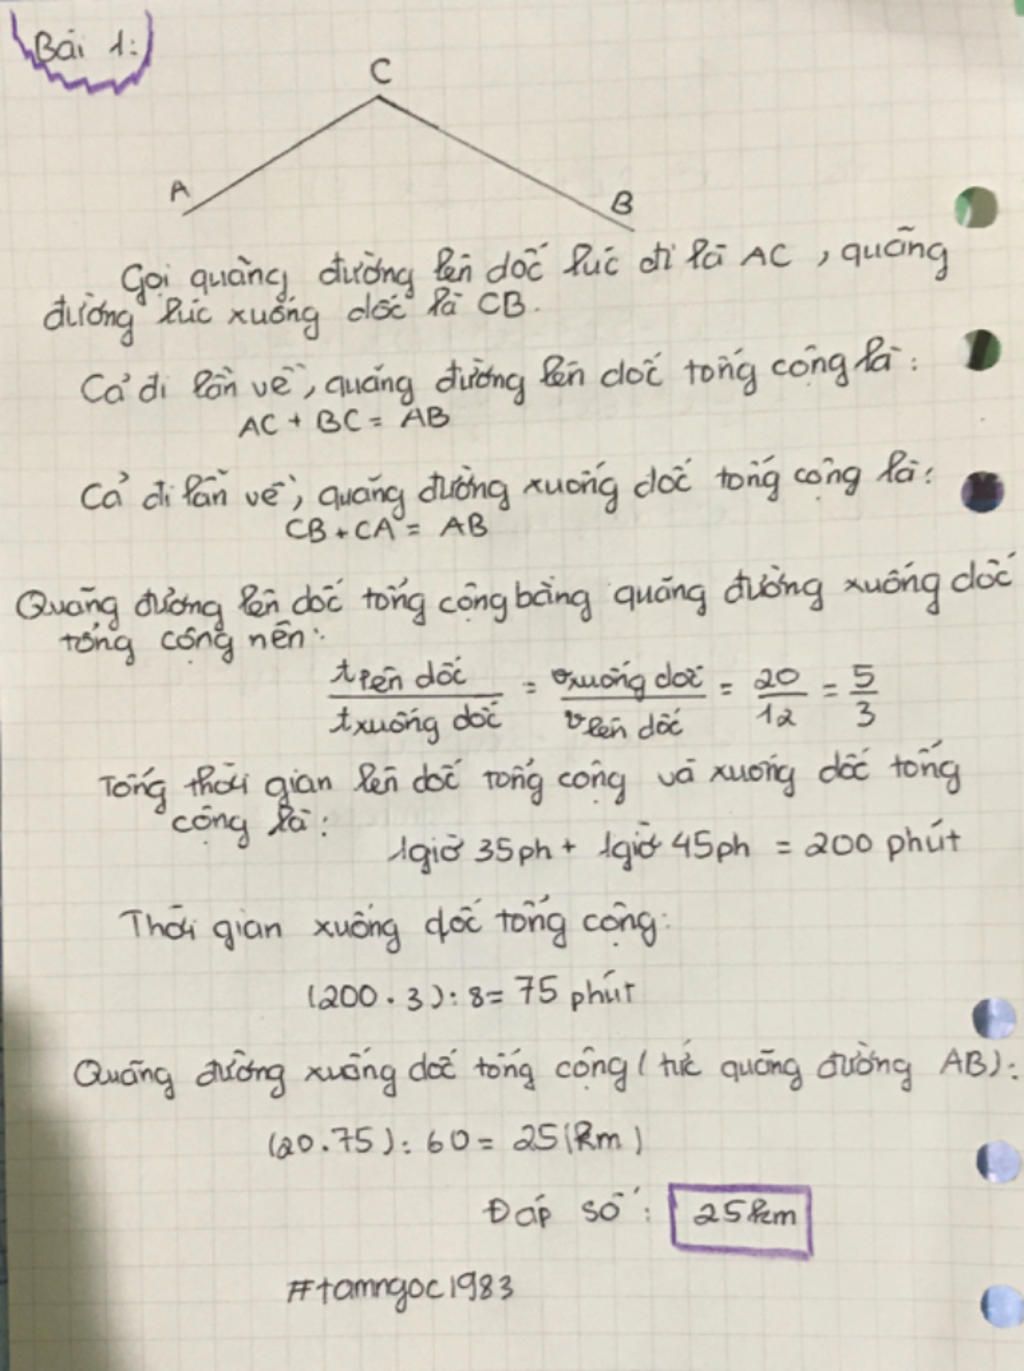 Bài 1:
C
A
B
Gọi quãng đường lên dốc lúc đi là AC, quãng
đường lúc xuống dốc là CB.
Cả đi lẫn về, quãng đường lên dốc tổng cộng là:
AC + BC = AB
Cả đi lẫn về, quãng đường xuống dốc tổng cộng là:
CB + CA = AB
Quãng đường lên dốc tổng cộng bằng quãng đường xuống dốc
tổng cộng nên:
t lên dốc / t xuống dốc = v xuống dốc / v lên dốc = 20/12 = 5/3
Tổng thời gian lên dốc tổng cộng và xuống dốc tổng
cộng là:
1giờ 35ph + 1giờ 45ph = 200 phút
Thời gian xuống dốc tổng cộng:
(200 . 3) : 8 = 75 phút
Quãng đường xuống dốc tổng cộng (tức quãng đường AB):
(20.75) : 60 = 25 (km)
Đáp số: 25km
#tamngoc1983